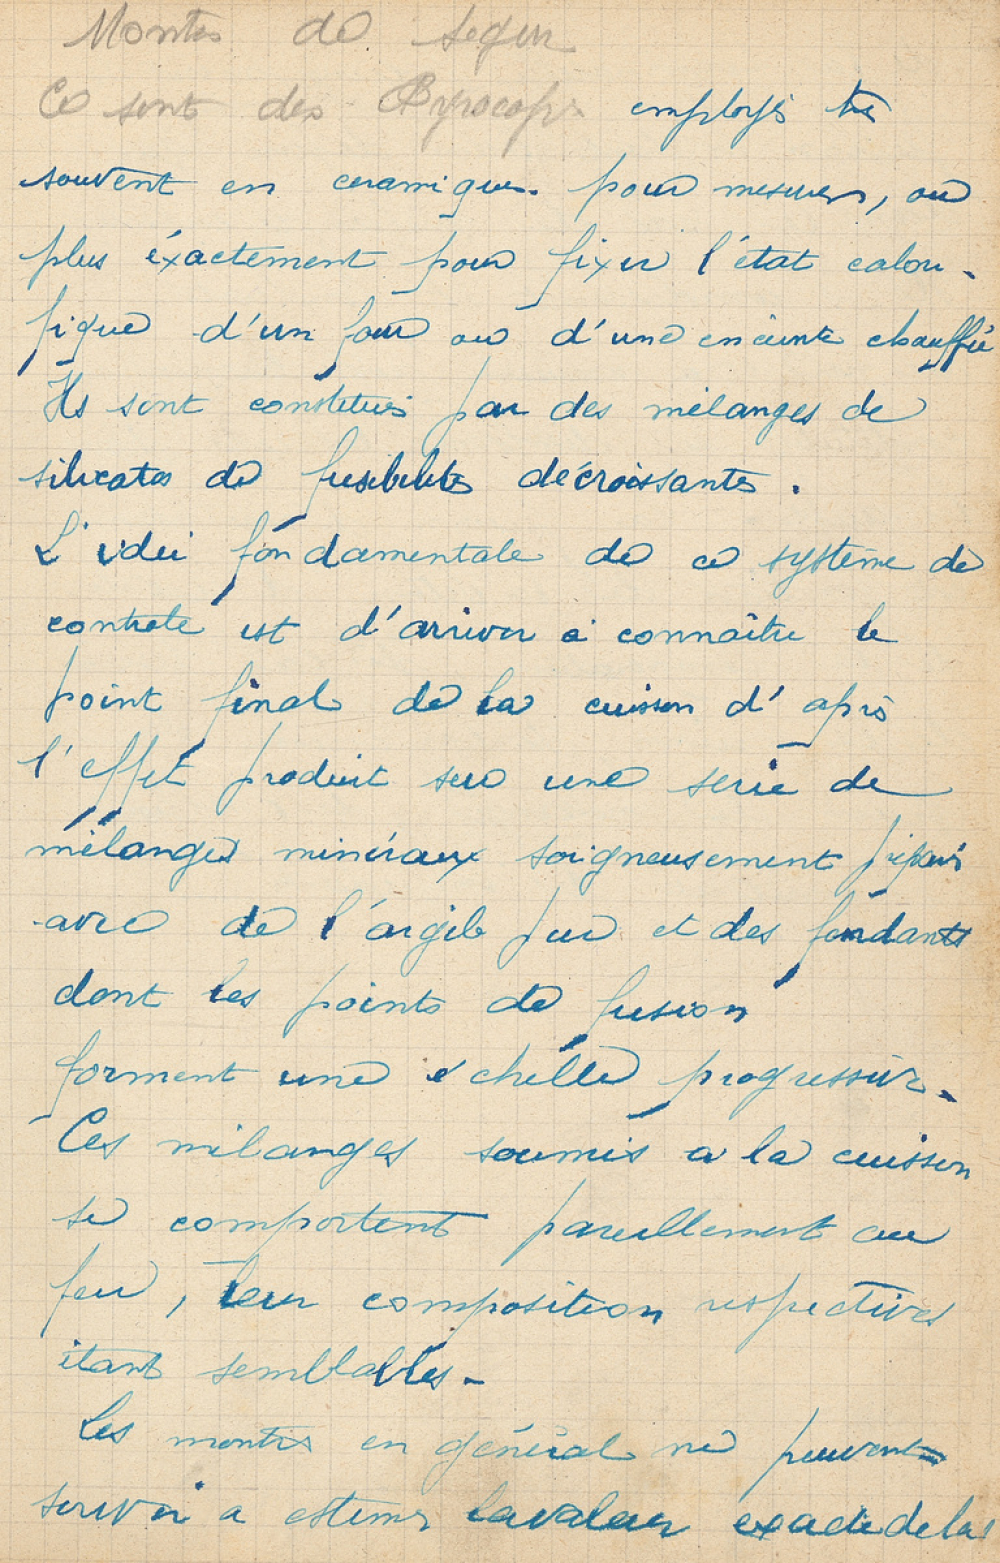 Montres de Seger
Ce sont des Pyroscopes employés très
souvent en ceramique. pour mesurer, ou
plus éxactement pour fixer l'état calori-
fique d'un four ou d'une enceinte chauffée
Ils sont constitués par des mélanges de
silicates de fusibilités décroissantes.
L'idée fondamentale de ce système de
controle est d'arriver à connaître le
point final de la cuisson d'après
l'effet produit sur une serie de
mélanges minéraux soigneusement préparés
avec de l'argile pur et des fondants
dont les points de fusion
forment une échelle progressive.
Ces mélanges soumis a la cuisson
se comportent pareillement au
feu, leur composition respectives
étant semblables.
Les montres en général ne peuvent
servir a estimer la valeur exacte de la